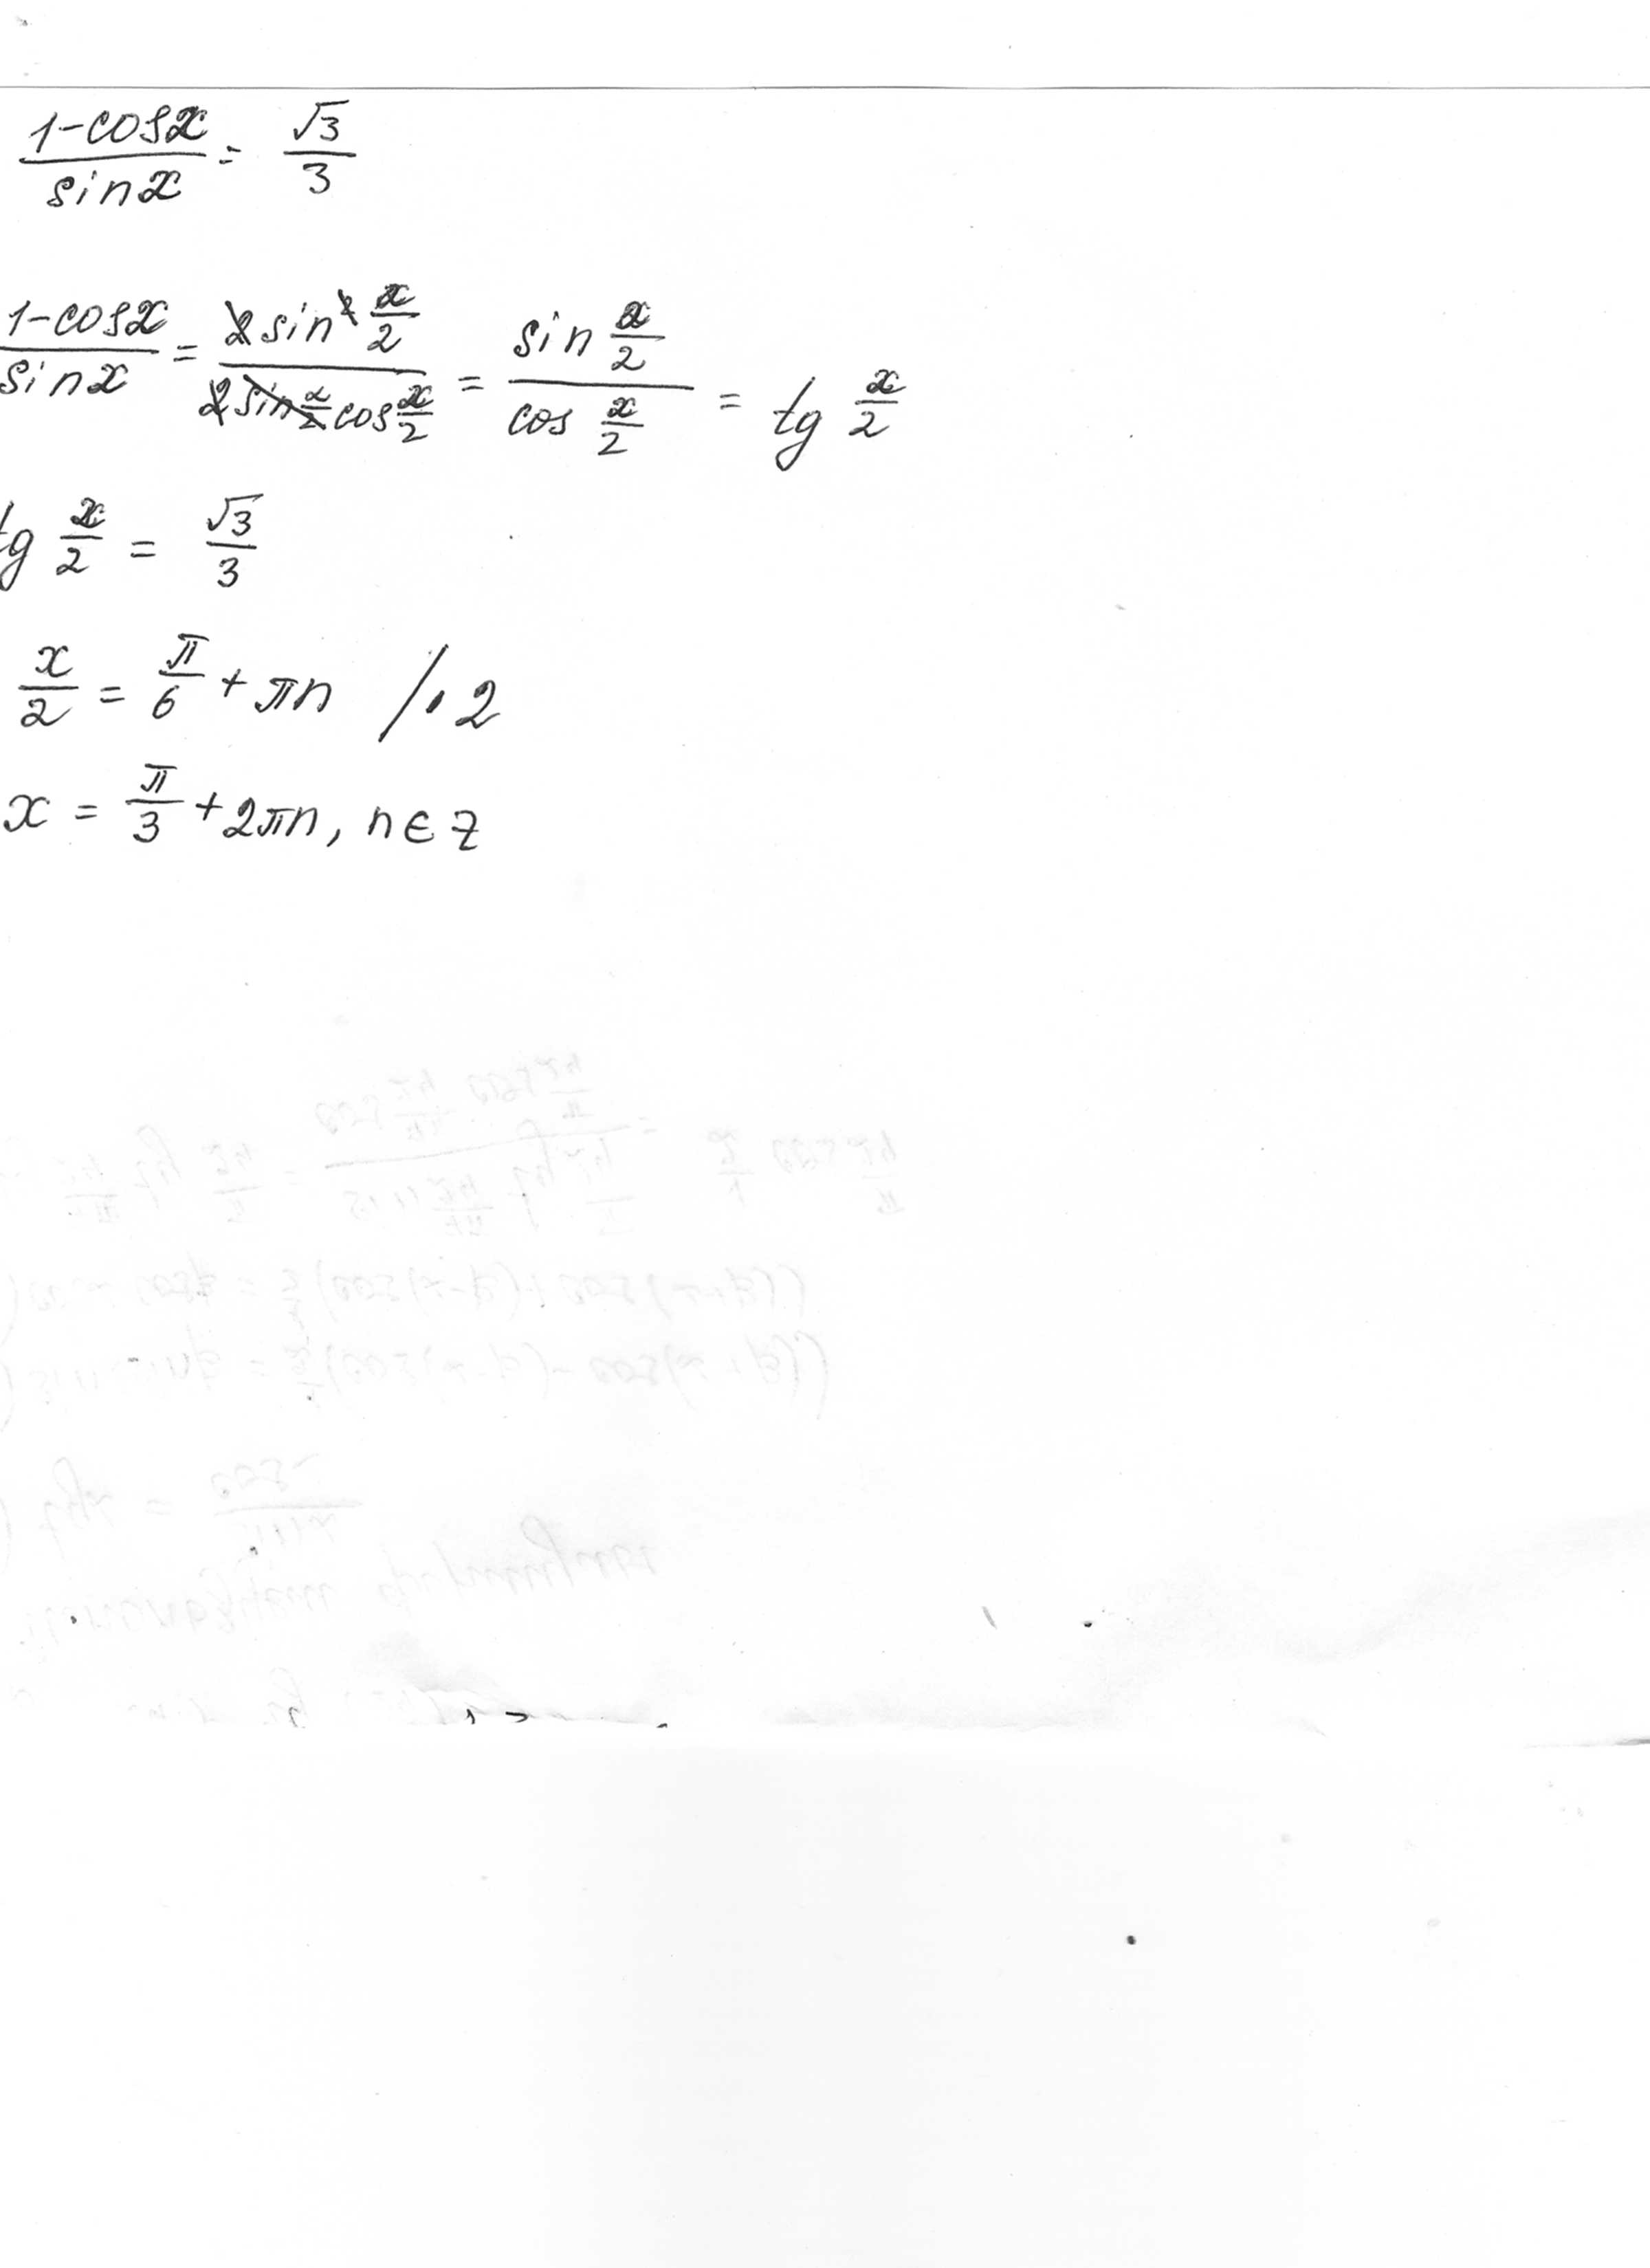 (1-cosx)/sinx = √3/3
(1-cosx)/sinx = (2sin²x/2)/(2sin x/2 cos x/2) = (sin x/2)/(cos x/2) = tg x/2
tg x/2 = √3/3
x/2 = π/6 + πn /·2
x = π/3 + 2πn, n∈z